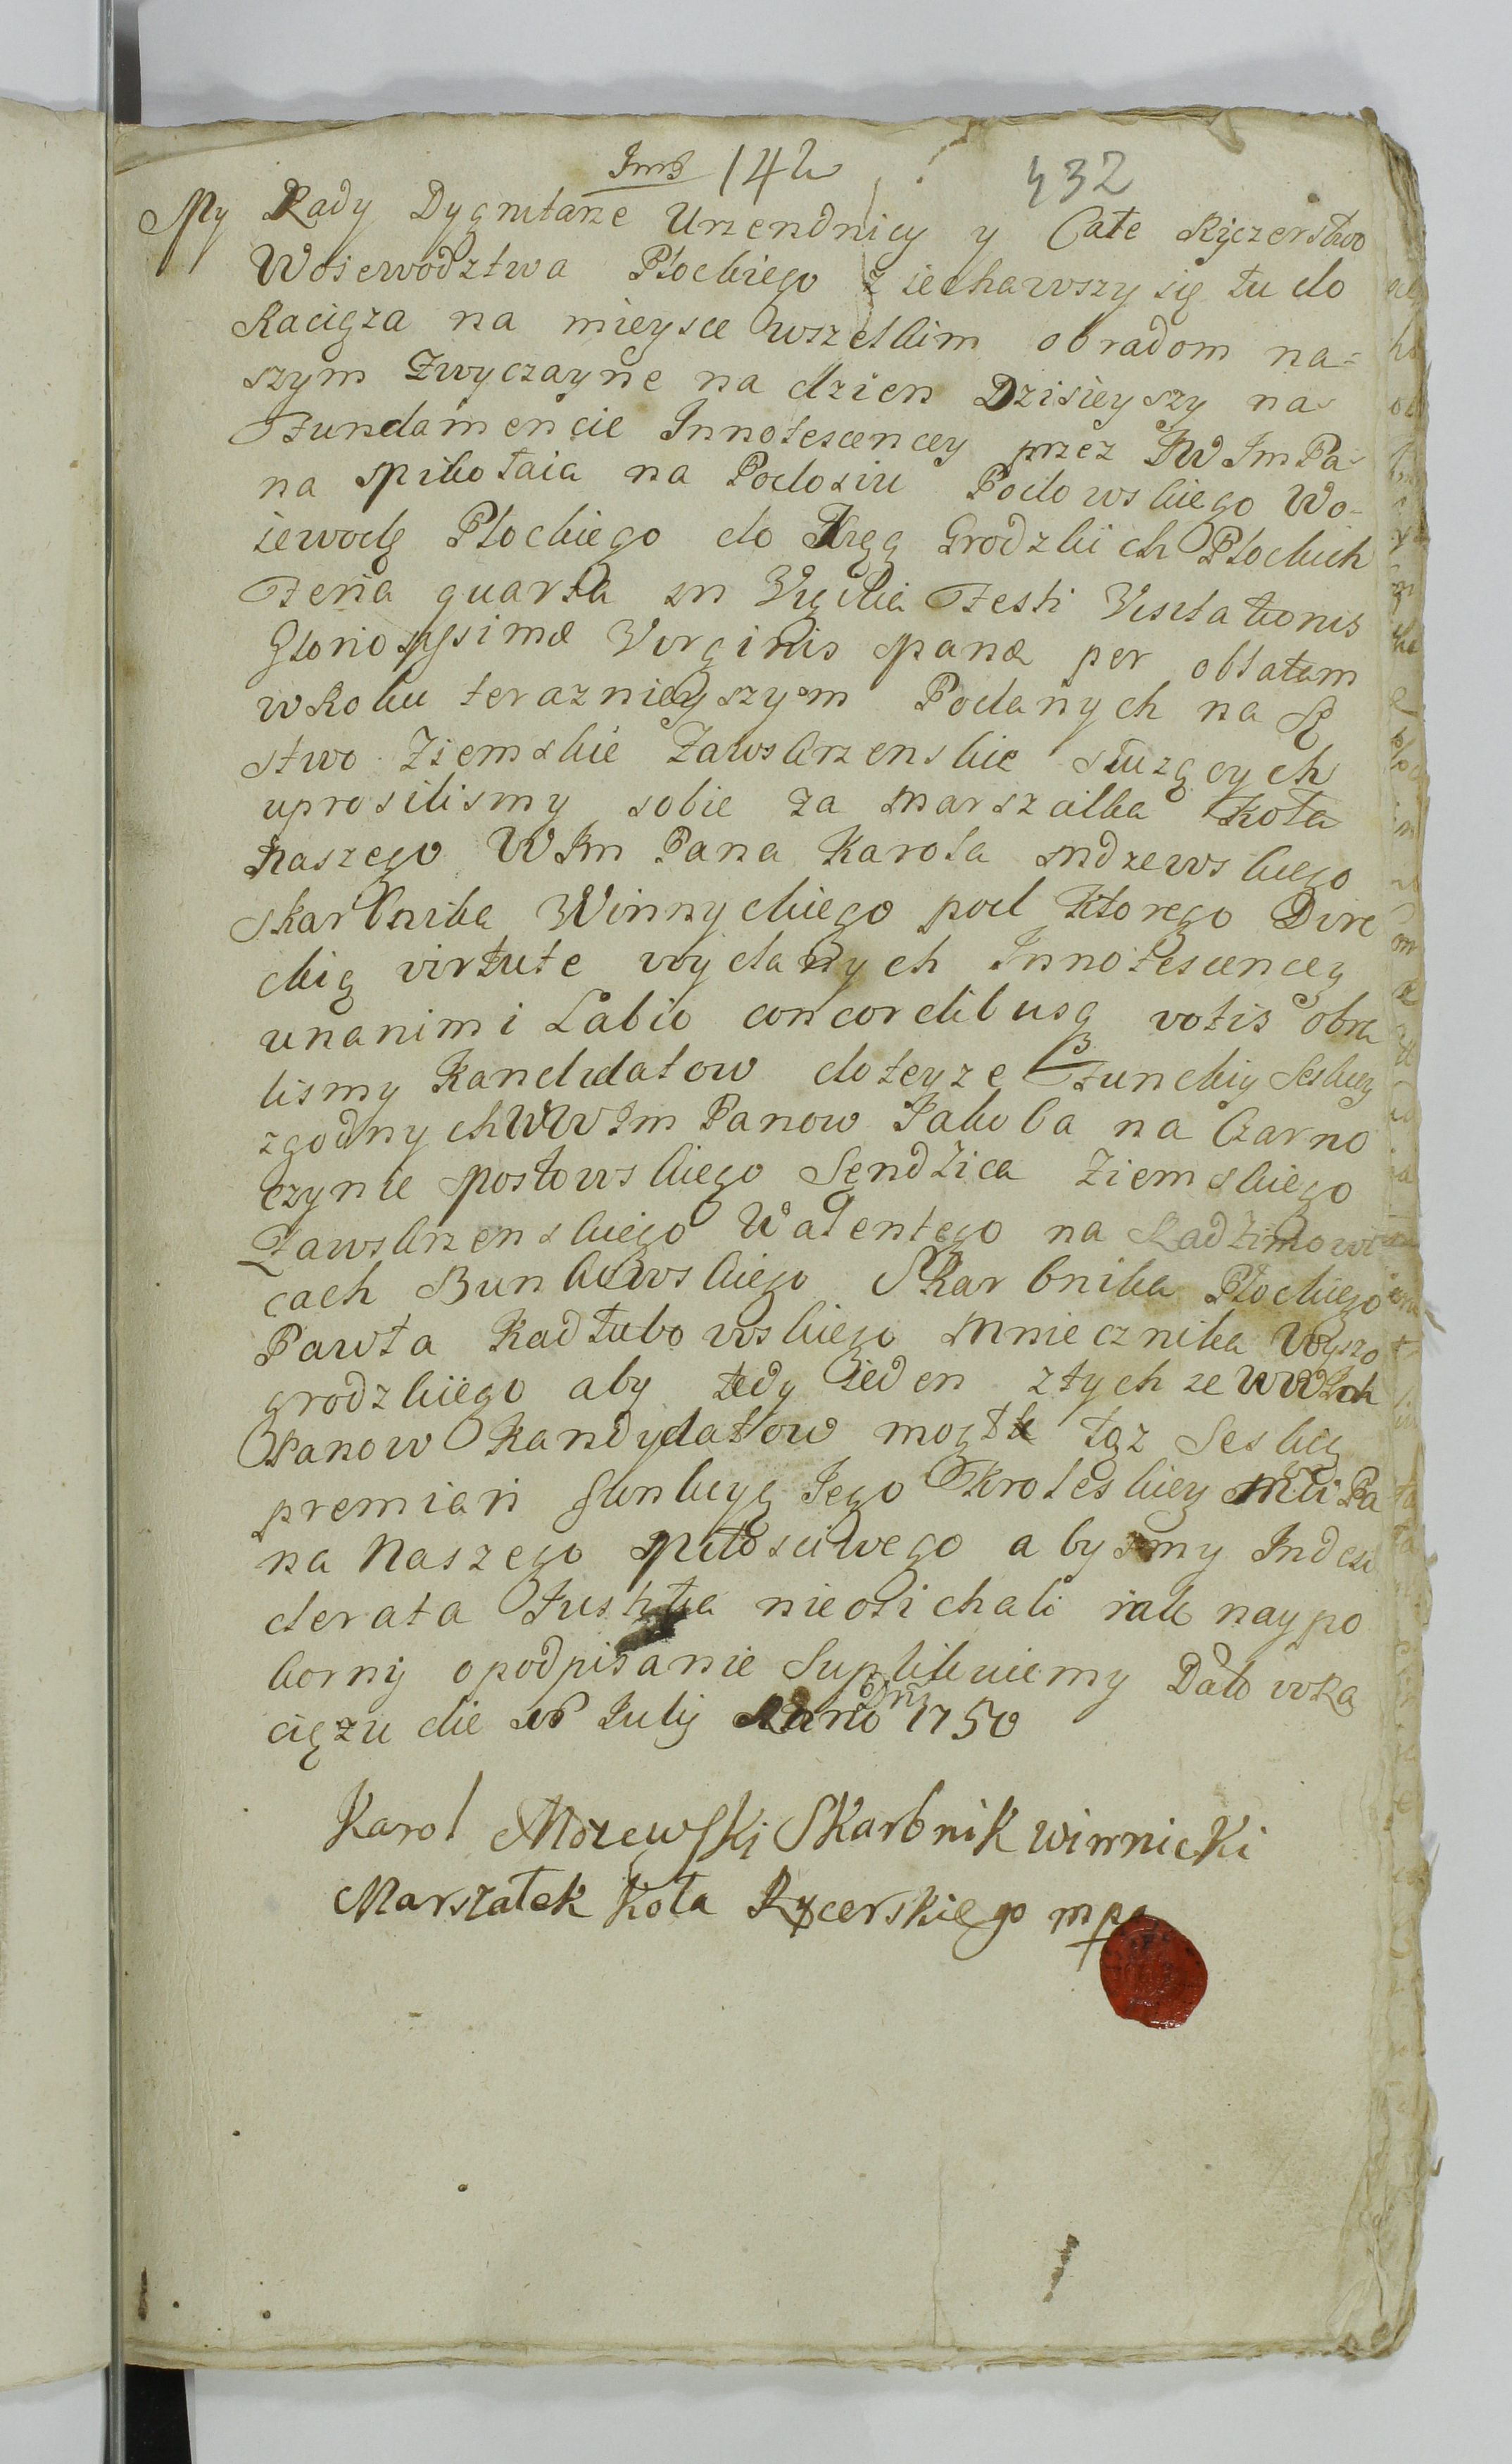 Imβ 142 432
My Rady Dygnitarze Urzendnicy y Całe Ryczerstwo
Wojewodztwa Płockiego ziechawszy się tu do
Raciąża na mieysce wszelkim obradom na=
szym zwyczayne na dzien Dzisieyszy na
Fundamencie Innotescencey przez JW Im Pa
na Mikołaia na Podosiu Podoskiego Wo-
iewodę Płockiego do Xiąg Grodzkich Płockich
Feria quarta in Vigilia Festi Visitationis
Gloriosissimæ Virginis Mariæ per oblatam
w Roku teraznieyszym Podanych na
stwo Ziemskie Zawskrzenskie służących
uprosilismy sobie za Marszałka Koła
Naszego W Im Pana Karola Mdzewskiego
Skarbnika Winnyckiego pod Ktorego Dire
kcią virtute wydanych Innotescencey
unanimi Labio concordibusq votis obra
lismy Kandidatow do teyze Funkciy
zgodnych WW Im Panow Jakoba na Czarno
czynie Mostowskiego Sendzica Ziemskiego
Zawskrzenskiego Walentego na Radzimowi
cach Bunkowskiego Skarbnika Płockiego
Pawła Kadłubowskiego Mniecznika Wyszo
grodzkiego aby tedy ieden z tychze WW Ich
Panow Kandydatow mogł tęz
premiari funkcyą Jego Kroleskiey Mci Pa
na Naszego Miłosciwego abysmy Indesi
derata Justitia nieosichali iak naypo
korniy o podpisanie Suplikuiemy Dat w Ra
ciążu die 16 Julij Anno Dni 1750
Karol Mdzewski Skarbnik winnicki
Marszałek Koła Rycerskiego mpa